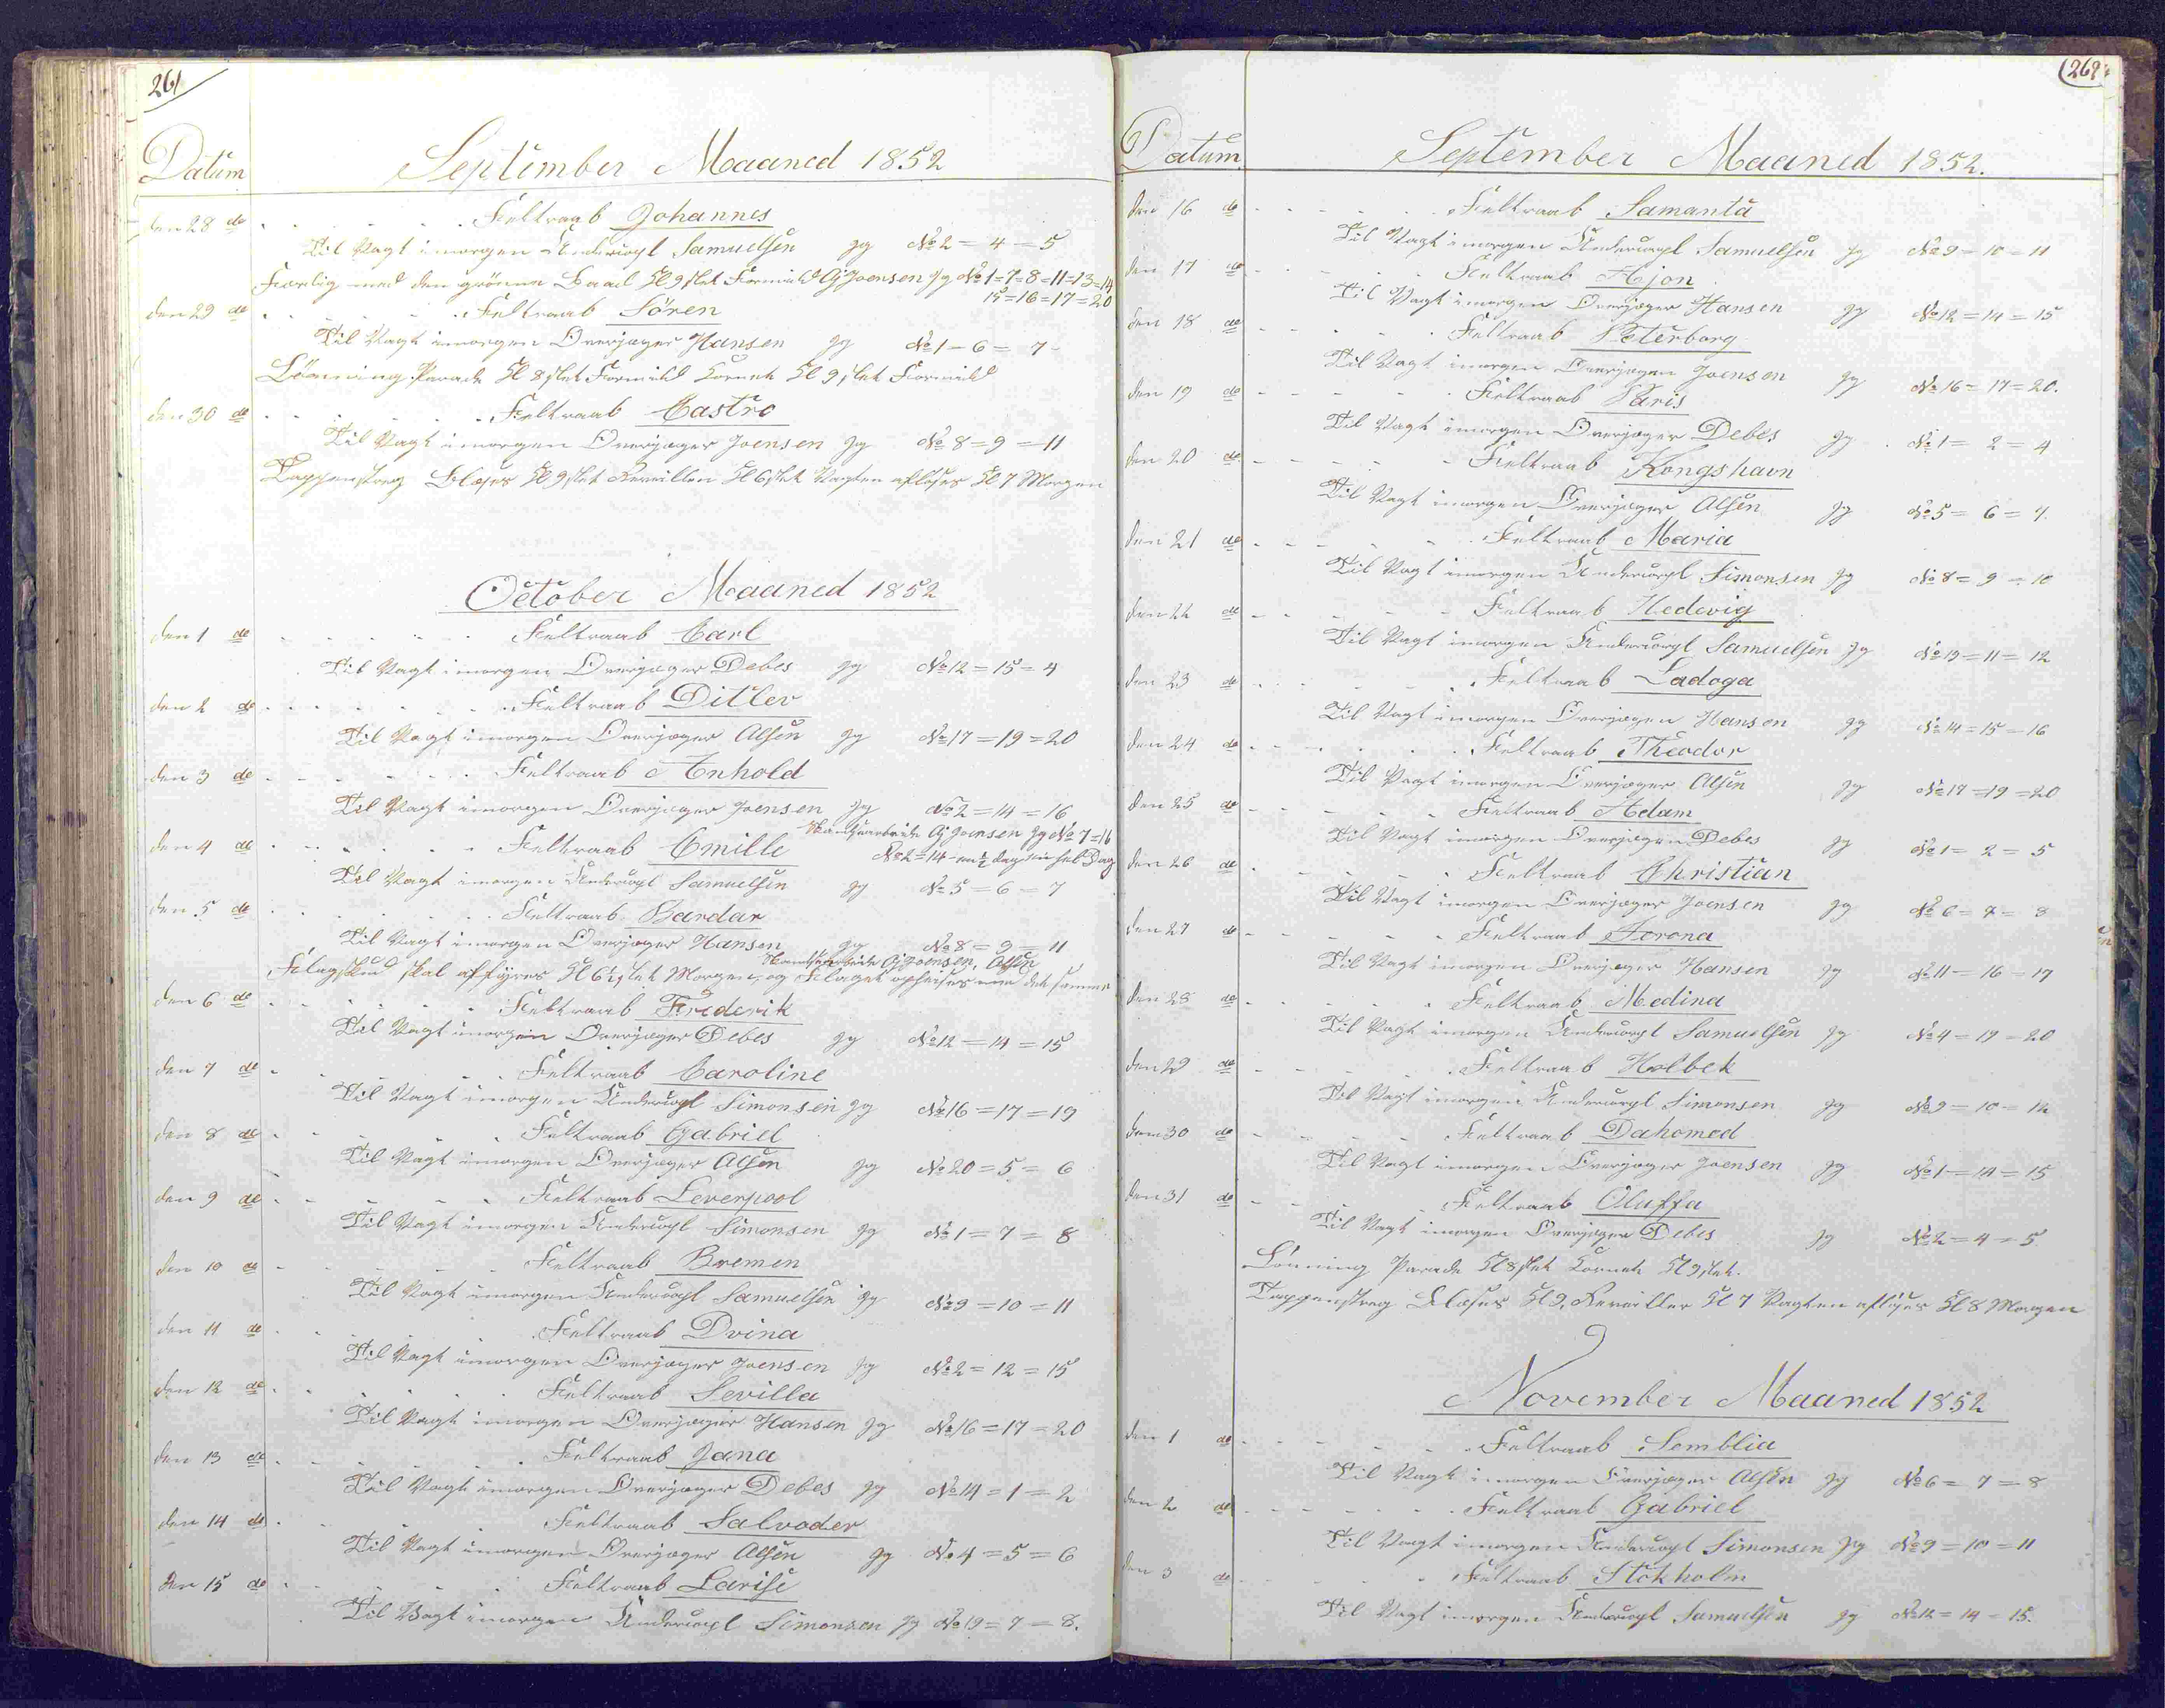 261
Datum September Maaned 1852
den 28 de Feltraab Johannes
Til Vagt imorgen Undercorpl Samuelsen Jg No 2 = 4 = 5
Færdig med den grönne Baad Kl 9 slet Formidd Oj Joensen Jg No 1=7=8=11=13=14
15=16=17=20
den 29 de Feltraab Sören
Til Vagt imorgen Overjæger Hansen Jg No 1 = 6 = 7
Lönning Parade Kl 8 slet Formidd Kornet Kl 9 slet Formidd
den 30 de Feltraab Castro
Til Vagt imorgen Overjæger Joensen Jg No 8 = 9 = 11
Tappenstreg Blæses Kl 9 slet Reveillen Kl 6 slet Vagten aflöses Kl 7 Morgen
October Maaned 1852
den 1 de Feltraab Carl
Til Vagt imorgen Overjæger Debes Jg No 12 = 15 = 4
den 2 de Feltraab Ditlev
Til Vagt imorgen Overjæger Olsen Jg No 17 = 19 = 20
den 3 de Feltraab Anhold
Til Vagt imorgen Overjæger Joensen Jg No 2 = 14 = 16
Oj Joensen Jg No 7=16
den 4 de Feltraab Emille
No 2=14 = en ½ dag en hel Dag
Til Vagt imorgen Undercorpl Samuelsen Jg No 5 = 6 = 7
den 5 de Feltraab Bardar
Til Vagt imorgen Overjæger Hansen Jg No 8 = 9 = 11
Oj Joensen, Olsen
Flagskud skal affyres Kl 6½ slet Morgen, og Flaget opheises med det samme
den 6 de Feltraab Friderik
Til Vagt imorgen Overjæger Debes Jg No 12 = 14 = 15
den 7 de Feltraab Caroline
Til Vagt imorgen Undercorpl Simonsen Jg No 16 = 17 = 19
den 8 de Feltraab Gabriel
Til Vagt imorgen Overjæger Olsen Jg No 20 = 5 = 6
den 9 de Feltraab Leverpool
Til Vagt imorgen Undercorpl Simonsen Jg No 1 = 7 = 8
den 10 de Feltraab Bremen
Til Vagt imorgen Undercorpl Samuelsen Jg No 9 = 10 = 11
den 11 de Feltraab Dvina
Til Vagt imorgen Overjæger Joensen Jg No 2 = 12 = 15
den 12 de Feltraab Sevilla
Til Vagt imorgen Overjæger Hansen Jg No 16 = 17 = 20
den 13 de Feltraab Jana
Til Vagt imorgen Overjæger Debes Jg No 14 = 1 = 2
den 14 de Feltraab Salvoder
Til Vagt imorgen Overjæger Olsen Jg No 4 = 5 = 6
den 15 de Feltraab Larise
Til Vagt imorgen Undercorpl Simonsen Jg No 19 = 7 = 8.
262
Datum September Maaned 1852.
den 16 de Feltraab Samanta
Til Vagt imorgen Undercorpl Samuelsen Jg No 9 = 10 = 11
den 17 de Feltraab Ajon
Til Vagt imorgen Overjæger Hansen Jg No 12 = 14 = 15
den 18 de Feltraab Peterborg
Til Vagt imorgen Overjæger Joensen Jg No 16 = 17 = 20.
den 19 de Feltraab Paris
Til Vagt imorgen Overjæger Debes Jg No 1 = 2 = 4
den 20 de Feltraab Kongshavn
Til Vagt imorgen Overjæger Olsen Jg No 5 = 6 = 7.
den 21 de Feltraab Maria
Til Vagt imorgen Undercorpl Simonsen Jg No 8 = 9 = 10
den 22 de Feltraab Hedevig
Til Vagt imorgen Undercorpl Samuelsen Jg No 19 = 11 = 12
den 23 de Feltraab Ladoga
Til Vagt imorgen Overjægen Hansen Jg No 14 = 15 = 16
den 24 de Feltraab Theodor
Til Vagt imorgen Overjæger Olsen Jg No 17 = 19 = 20
den 25 de Feltraab Adam
Til Vagt imorgen Overjægen Debes Jg No 1 = 2 = 5
den 26 de Feltraab Christian
Til Vagt imorgen Overjæger Joensen Jg No 6 = 7 = 8
den 27 de Feltraab Ferona
Til Vagt imorgen Overjæger Hansen Jg No 11 = 16 = 17
den 28 de Feltraab Medina
Til Vagt imorgen Undercorpl Samuelsen Jg No 4 = 19 = 20
den 29 de Feltraab Holbek
Til Vagt imorgen Undercorpl Simonsen Jg No 9 = 10 = 12
den 30 de Feltraab Dahomed
Til Vagt imorgen Overjæger Joensen Jg No 1 = 14 = 15
den 31 de Feltraab Oluffa
Til Vagt imorgen Overjæger Debes Jg No 2 = 4 = 5
Lönning Parade Kl 8 slet Kornet Kl 9 slet.
Tappenstreg Blæses Kl 9, Reveillen Kl 7 Vagten aflöses Kl 8 Morgen
November Maaned 1852
den 1 de Feltraab Semblia
Til Vagt imorgen Overjæger Olsen Jg No 6 = 7 = 8
den 2 de Feltraab Gabriel
Til Vagt imorgen Undercorpl Simonsen Jg No 9 = 10 = 11
den 3 de Feltraab Stokholm
Til Vagt imorgen Undercorpl Samuelsen Jg No 12 = 14 = 15.